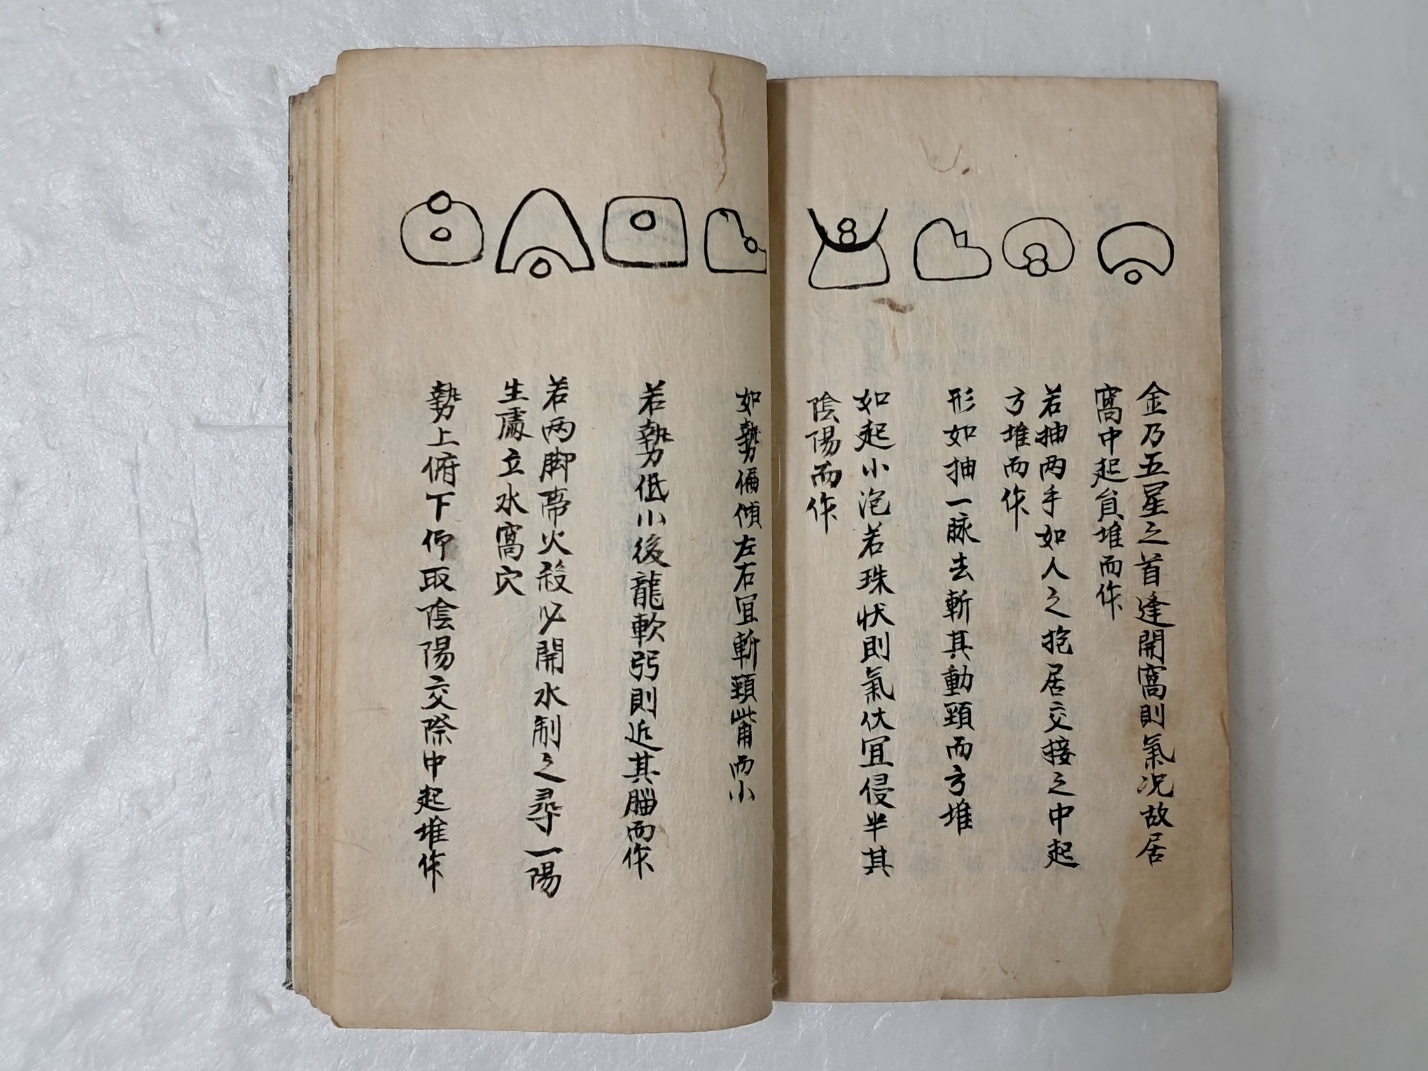 金乃五星之首逢開窩則氣况故居
窩中起員堆而作
若抽两手如人之抱居交接之中起
方堆而作
形如抽一脉去斬其動頸而方堆
如起小泡若珠状則氣伏宜侵半其
陰陽而作
如勢偏傾左右宜斬頸觜而小
若勢低小後龍軟弱則近其腦而作
若两脚帶火殺必開水制之尋一陽
生處立水窩穴
勢上俯下仰取陰陽交際中起堆作